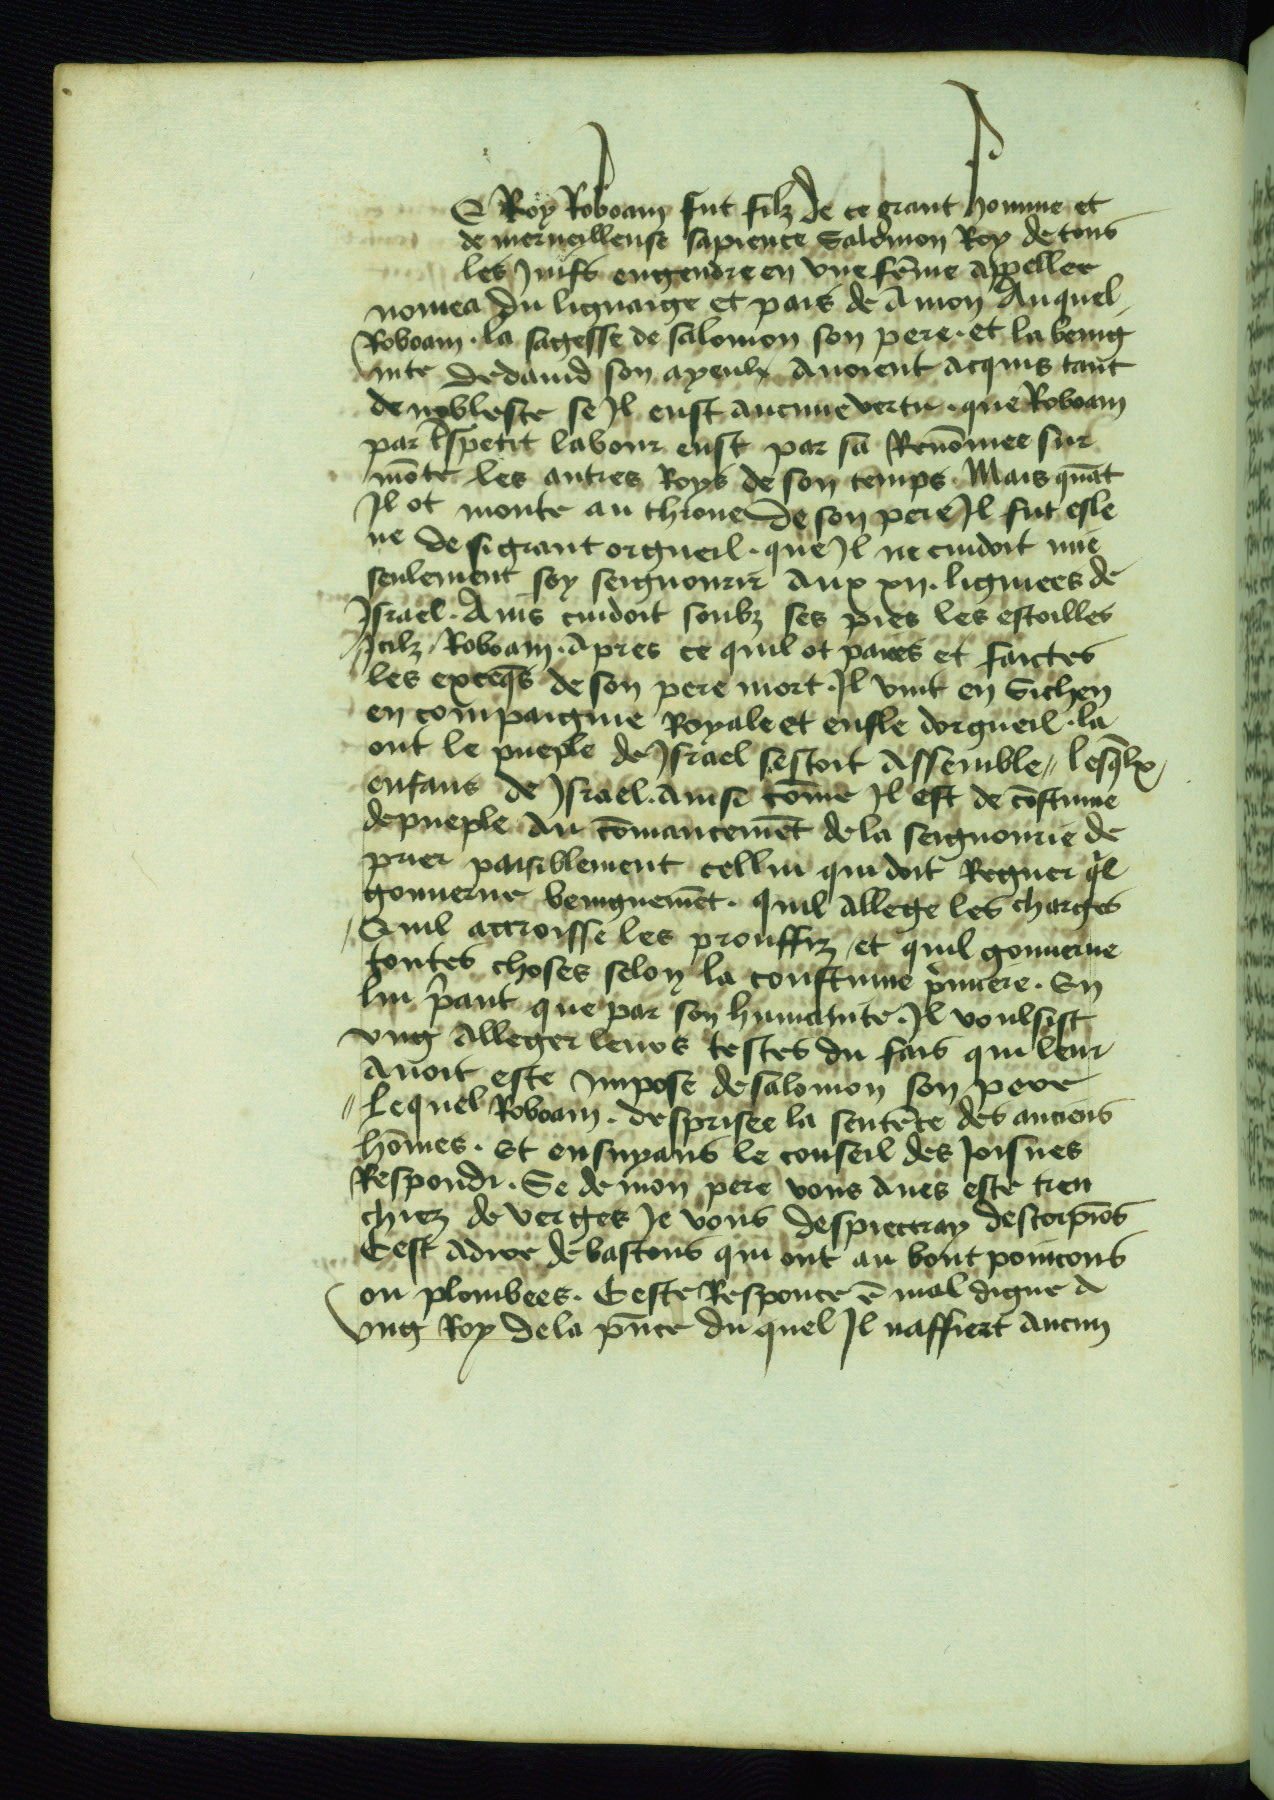 E Roy Roboam fut filz de ce grant homme et
de merueilleuse sapience Salomon Roy de tous
les Juifs engendre en vne fem̄e Appellee
nomea du lignaige et pais de Amon Auquel
Roboam . la sagesse de salomon son pere . et la benig
nite dedauid son ayeulx Auoient Acquis tant
de noblesse se Jl eust Aucune vertu . que Roboam
par tres petit labour eust par sa Renōmee sur
mōte les autres Roys de son temps . Mais quāt
Jl ot monte au throne de son pere Jl fut esle
ue de si grant orgueil . que Jl ne cuidoit mie
seulement soy seignourir Aux xii . lignees de
Jsrael . Ains cuidoit soubz ses pies les estoilles
Jcilz Roboam . Apres ce quil ot paiees et faictes
les exceq̄s de son pere mort . Jl vint en Sichen
en compaignie Royale et enfle dorgueil . la
ont le pueple de Jsrael sestoit Assemble // lesq̄lx
enfans de Jsrael . Ainsi cōme Jl est de coustume
depueple Au cōmancemēt de la seignourie de
prier paisiblement cellui qui doit Regner q̄l
gouuerne benignemēt . quil Allege les charges
/ Quil accroisse les prouffiz / et quil gouuerne
toutes choses selon la coustume p̄miere . En
lui p̄ant que par son humanite . Jl voulsist
vng Alleger leurs testes du fais qui leur
Auoit este Jmpose de salomon son pere
// Lequel Roboam . desprisee la sentēce des anciens
hōmes . Et ensuyans le conseil des Joisnes
Respondi . Se de mon pere vous Aues este tren
chiez de verges Je vous despieceray descorpiōs
Cest Adire de bastons qui ont au bout poincons
ou plombees . Ceste Responce ē mal digne A
vng Roy de la p̄nce du quel Jl naffiert Aucun